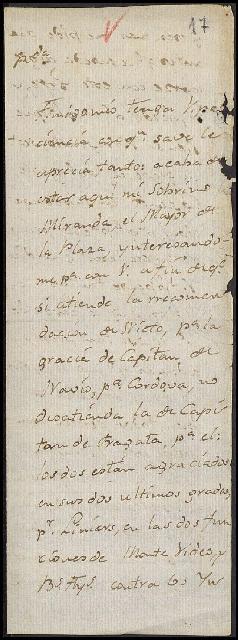 17
Amigo mio, tenga V. pa
ciencia con qn. save le
aprecia tanto: acaba de
estar aqui mi Sobrino
Miranda el Mayor de
la Plaza, ynteresando-
me pa. con V. a fin de qe.
si atiende la recomen
dacion de Nieto, pa. la
gracia de Capitan de
Navio, pa. Cordova, no
desatienda la de Capi
tan de Fragata, pa. el:
los dos estan agraciados
en sus dos ultimos grados,
pr. Liniers, en las dos fun
ciones de Monte Video, y
Bs. Ays. contra los Yn